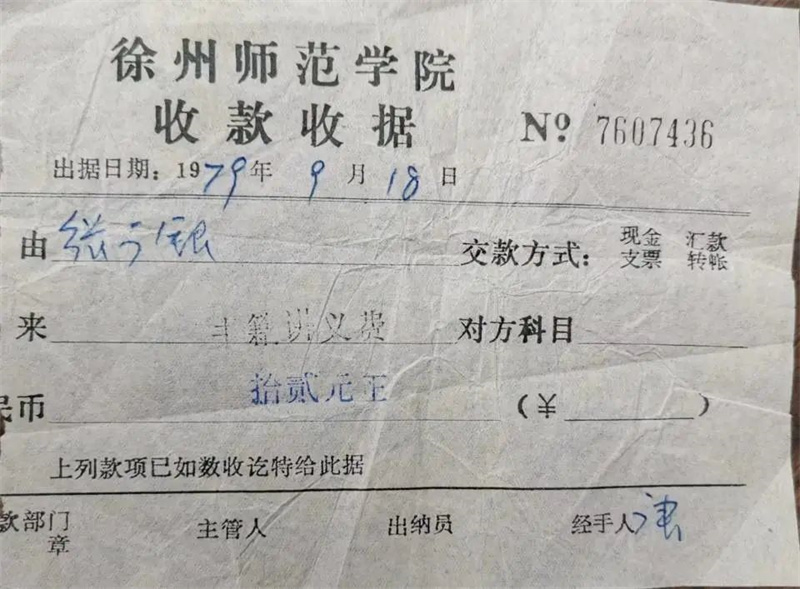 徐州师范学院
收款收据 № 7607436
出据日期：1979年 9 月 18 日
由 张 银 交款方式：现金 汇款
支票 转帐
来 书籍讲义费 对方科目
民币 拾贰元正 （¥ ）
上列款项已如数收讫特给此据
款部门 主管人 出纳员 经手人
章